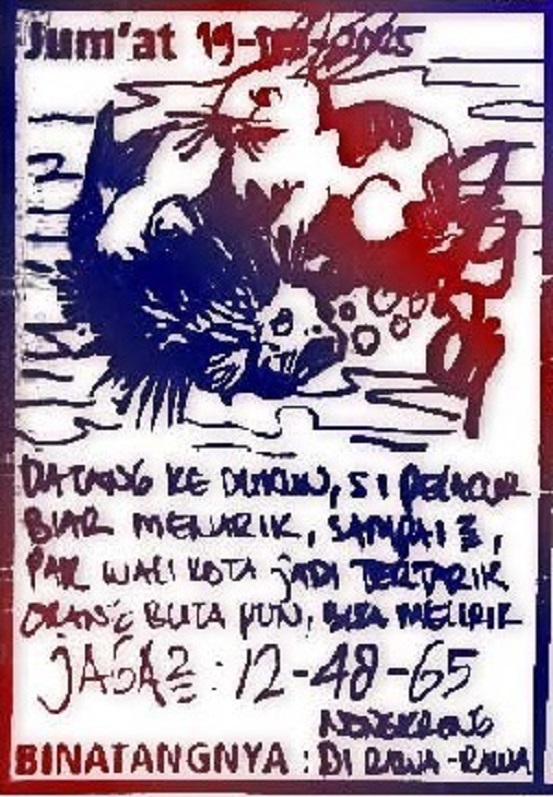 Jum'at 19- -2025
DATANG KE DUKUN, SI PELACUR
BIAR MENARIK, SAMPAI 2,
PAK WALI KOTA JADI TERTARIK
ORANG BUTA PUN, BISA MELIRIK
JAGA2 : 12-48-65
NONGKRONG
BINATANGNYA : DI RAWA-RAWA